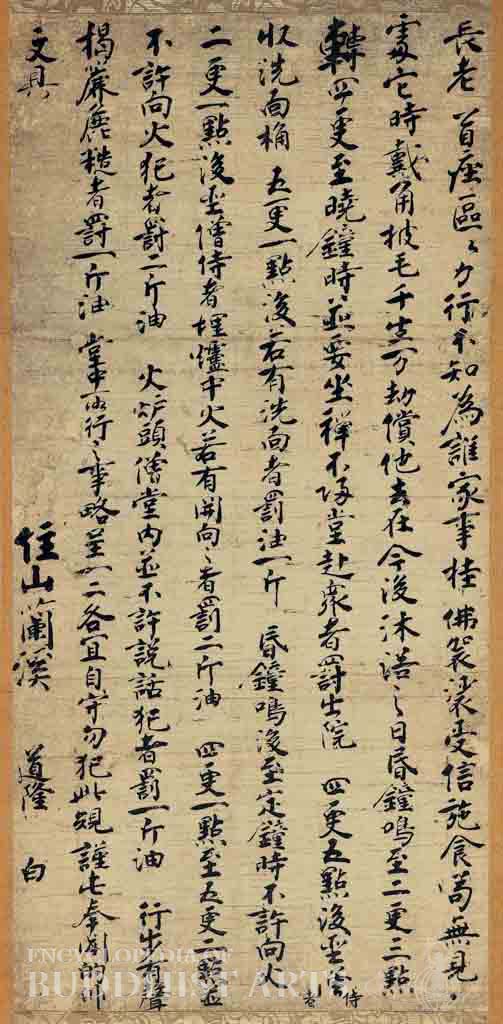 長老首座區々力行不知為誰家事桂佛袈裟受信施食苟無見
處它時戴角披毛千生万劫償他去在今後沐浴之日昏鐘鳴至二更三點
轉四更至曉鐘時並要坐禪不歸堂赴衆者罰出院 四更五點後聖僧侍者
収洗面桶 五更一點後若有洗面者罰油一斤 昏鐘鳴後至定鐘時不許向火
二更一點後聖僧侍者埋爐中火若有開向之者罰二斤油 四更一點至五更二點並
不許向火犯者罰二斤油 火炉頭僧堂内並不許説話犯者罰一斤油 行步有聲
揭簾麁糙者罰一斤油 堂中所行之事略呈一二各宜自守勿犯此規謹此奉聞
文具 住山蘭溪 道隆 白
ENCYCLOPEDIA OF
BUDDHIST ARTS